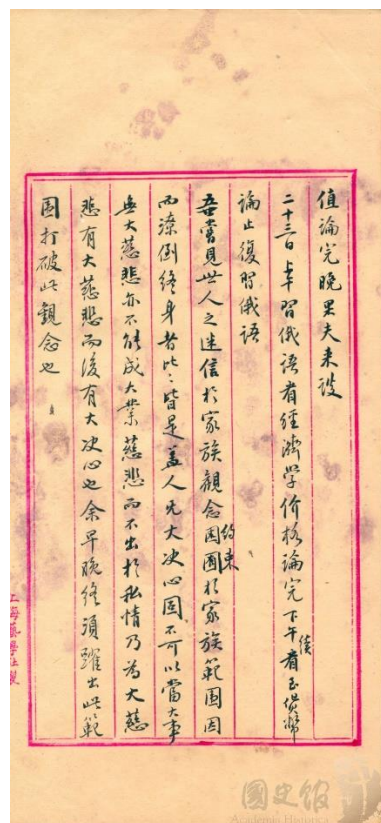 值論完晚果夫來談
二十三日上午習俄語看經濟學价格論完下午看至貨幣
續
論止復習俄語
吾嘗見世人之迷信於家族觀念囿於家族範圍因
約束
而潦倒終身者比比皆是蓋人无大決心固不可以當大事
無大慈悲亦不能成大業慈悲而不出於私情乃為大慈
悲有大慈悲而後有大決心也余早晚終須躍出此範
圍打破此觀念也
國史館
Academia Historica